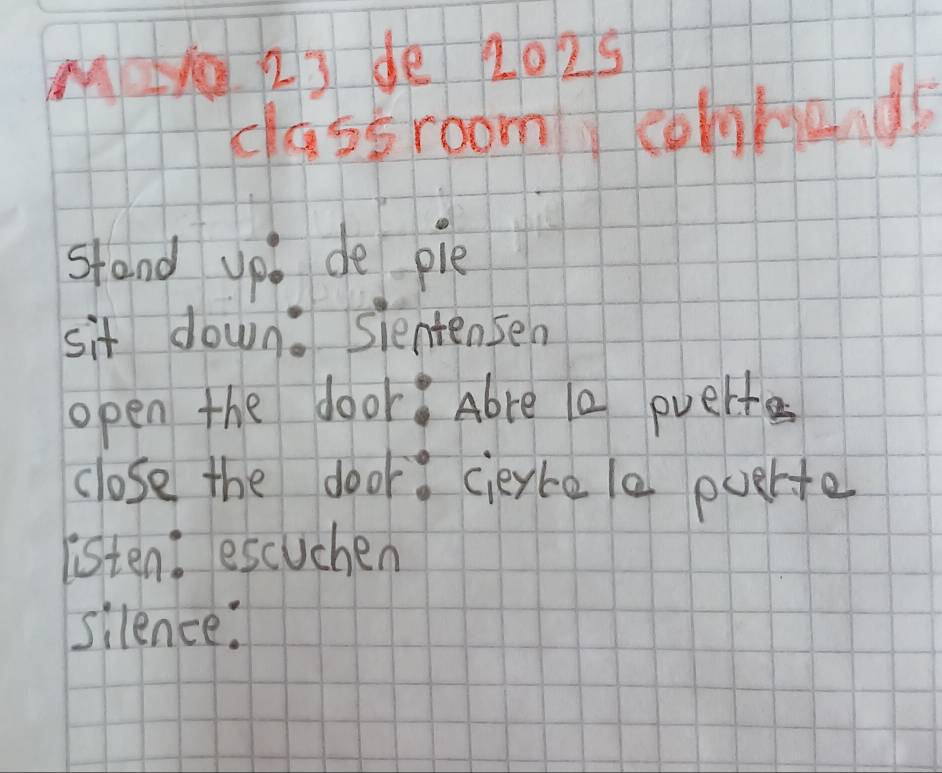 Mayo 23 de 2025
classroom commands
stand up: de pie
sit down: sientensen
open the door: Abre la puerta
close the door: cierra la puerta
listen: escuchen
silence: